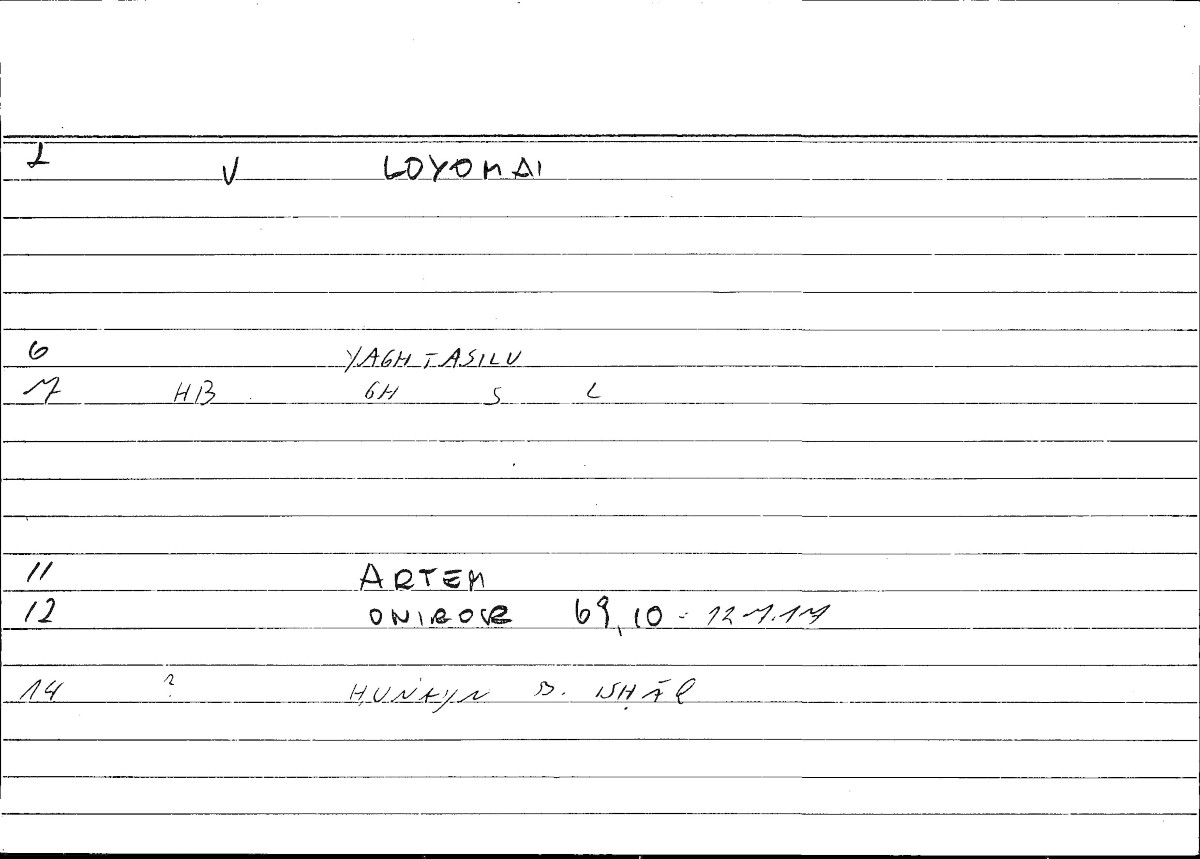 1 V LOYOMAI
6 YAGHTASILU
7 HB GH S L
11 ARTEM
12 ONIROCR 69,10 - 127.17
14 ? ḤUNAYN B. ISḤĀQ